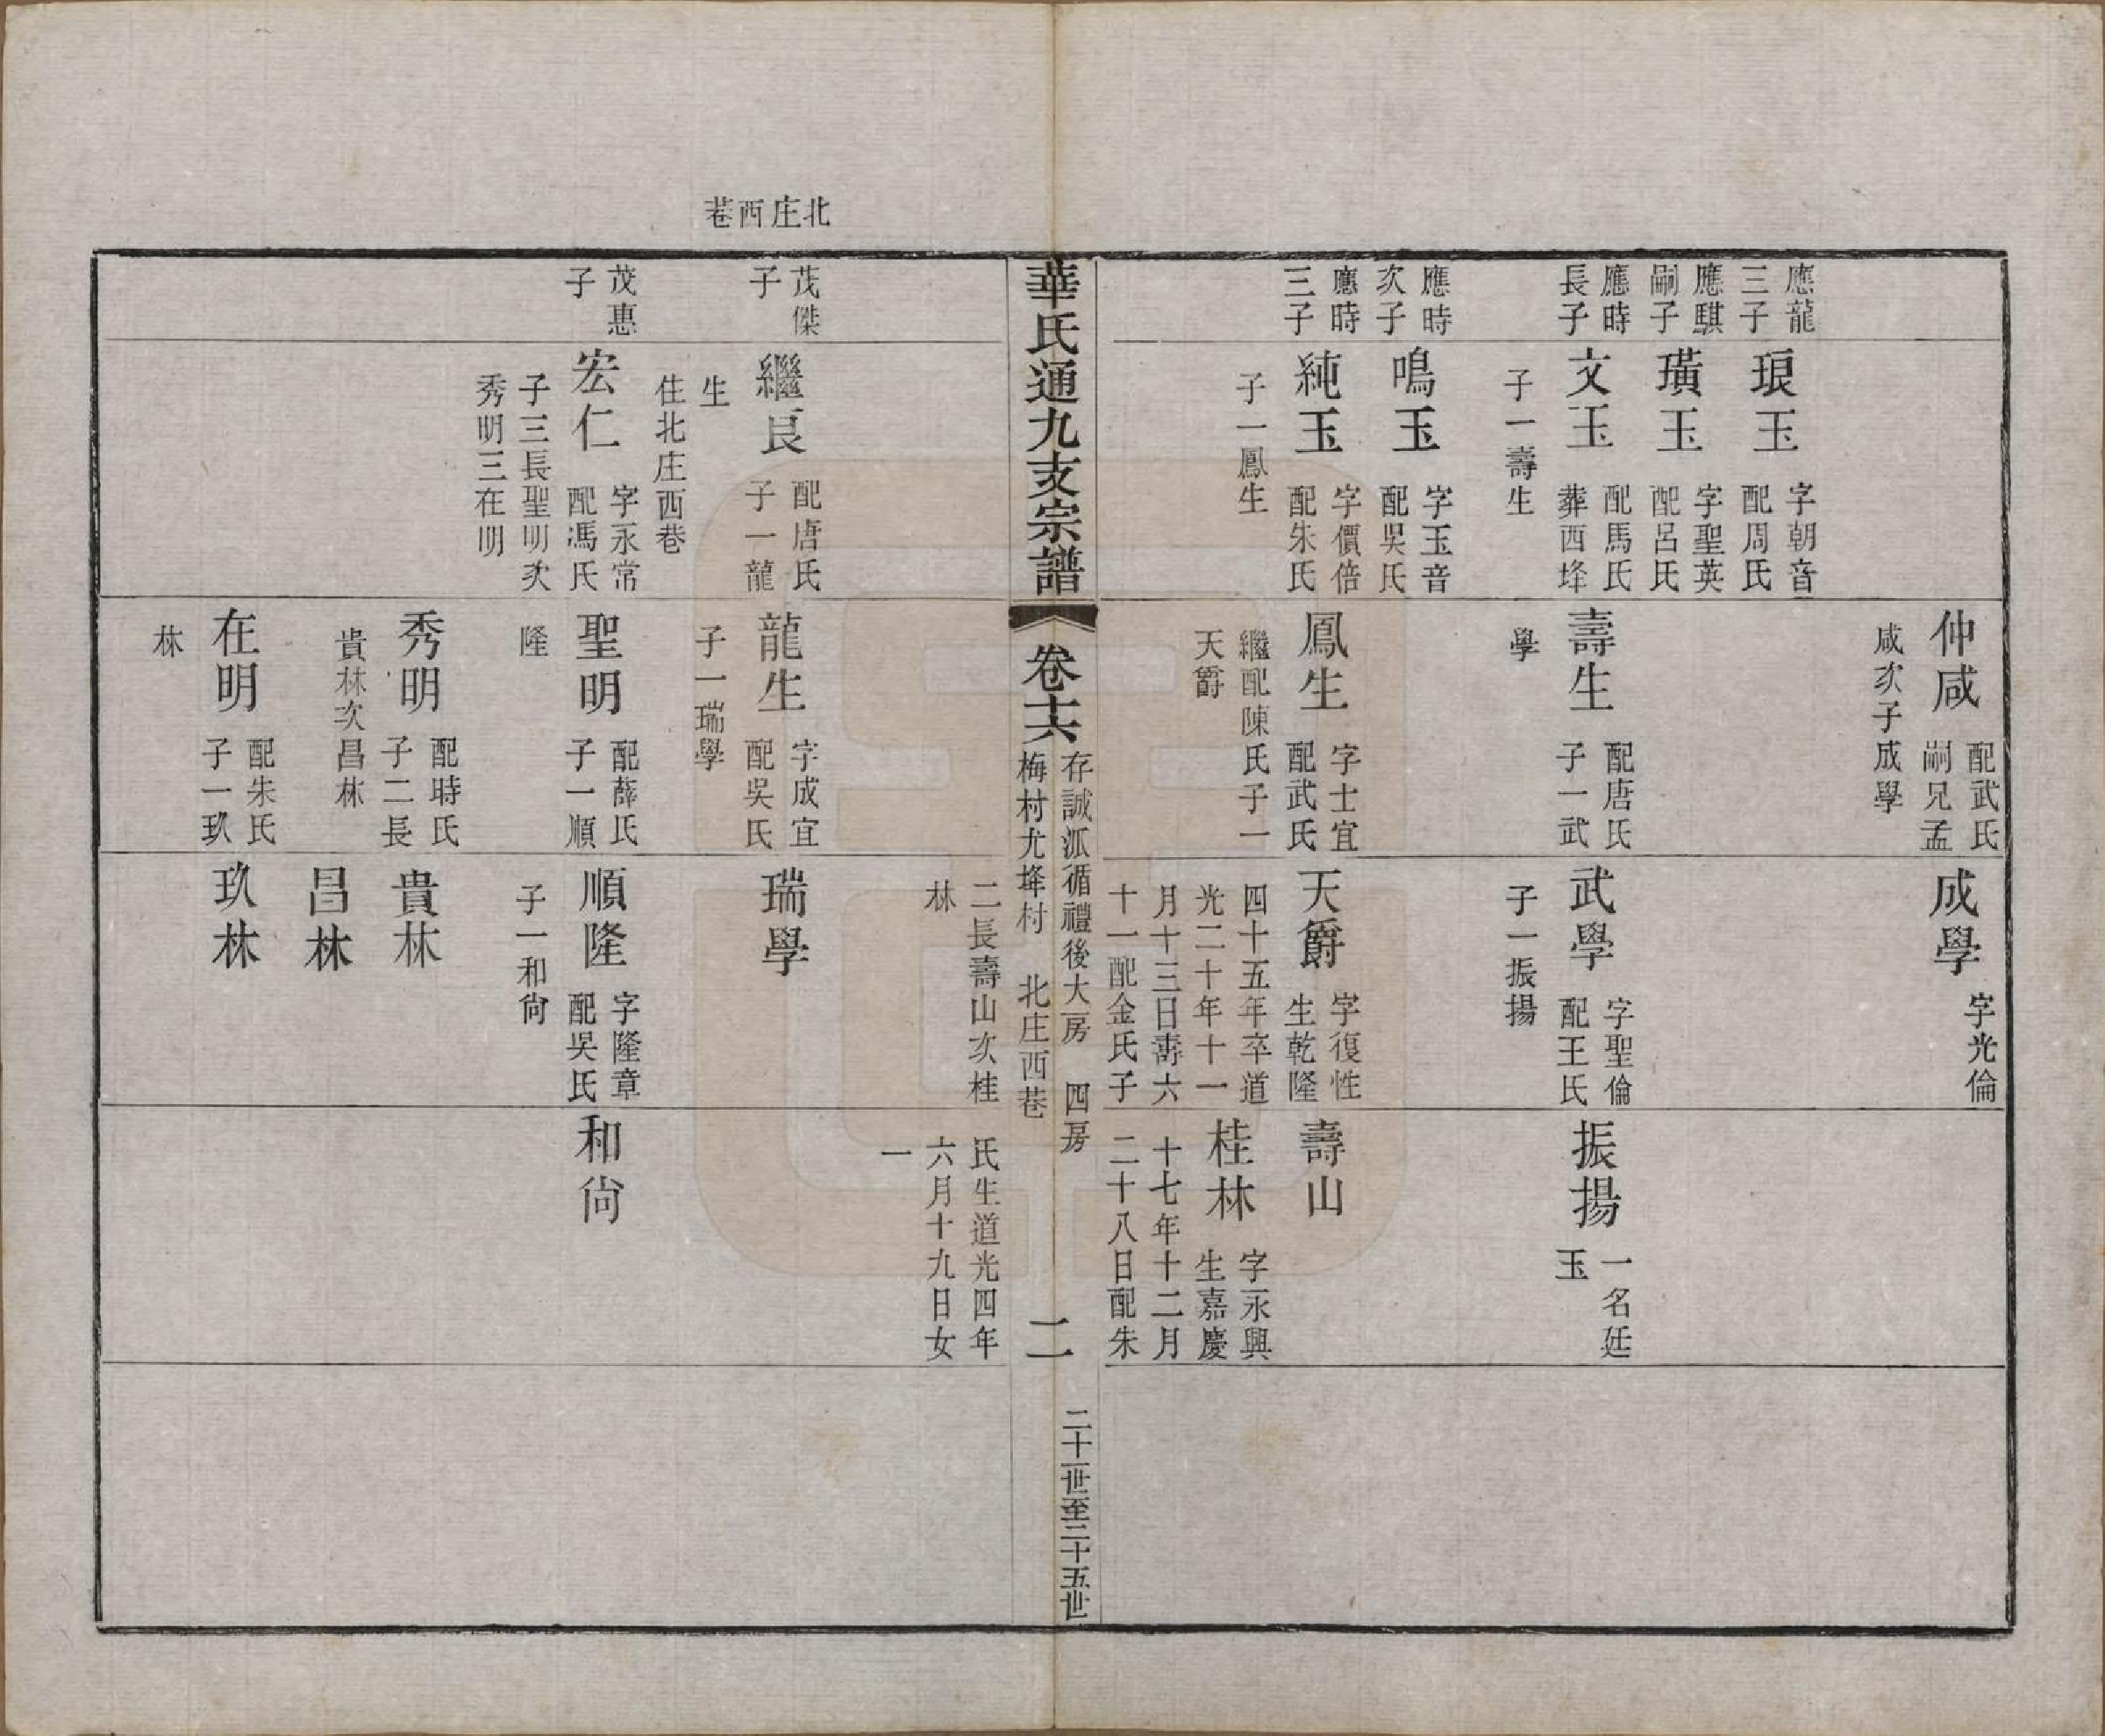 應龍三子
琅玉 字朝音 配周氏
應騏嗣子
璜玉 字聖英 配呂氏
應時長子
文玉 配馬氏 葬西垶
子一壽生
應時次子
鳴玉 字玉音 配吳氏
應時三子
純玉 字價倍 配朱氏
子一鳳生
仲咸 配武氏 嗣兄孟
咸次子成學
壽生 配唐氏 子一武
學
鳳生 字士宜 配武氏
繼配陳氏子一
天爵
成學 字光倫
武學 字聖倫 配王氏
子一振揚
天爵 字復性 生乾隆
四十五年卒道
光二十年十一
月十三日壽六
十一配金氏子
二長壽山次桂
林
振揚 一名廷玉
壽山
桂林 字永興 生嘉慶
十七年十二月
二十八日配朱
氏生道光四年
六月十九日女
一
華氏通九支宗譜
卷十六
存誠派循禮後大房 四房
梅村尤垶村 北庄西巷
二
二十一世至二十五世
北庄西巷
茂傑子
繼良 配唐氏 子一龍
生
住北庄西巷
茂惠子
宏仁 字永常 配馮氏
子三長聖明次
秀明三在明
龍生 字成宜 配吳氏
子一瑞學
聖明 配薛氏 子一順
隆
秀明 配時氏 子二長
貴林次昌林
在明 配朱氏 子一玖
林
瑞學
順隆 字隆章 配吳氏
子一和尙
貴林
昌林
玖林
和尙